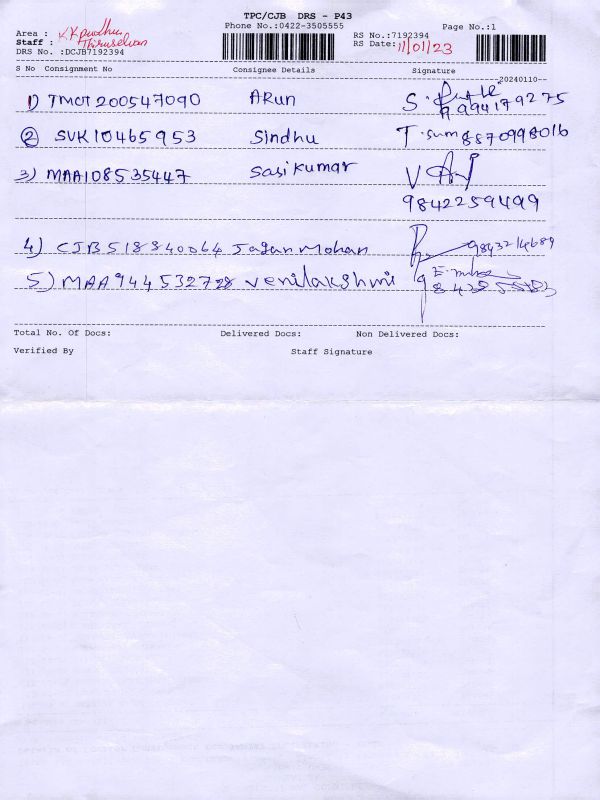 TPC/CJB DRS - P43
Phone No.:0422-3505555
Page No.:1
Area : K.K pudhu
Staff : Thiruselvan
DRS No. :DCJB7192394
RS No.:7192394
RS Date: 11/01/23
20240110
S No Consignment No Consignee Details Signature
1) TMCT 200547090 ARun S. 9994179275
2 SVK10465953 Sindhu T. sum 8870998016
3) MAA108535447 Sasikumar V
9842259499
4) CJB518840064 Jagan Mohan 9843214689
5) MAA944532728 Venilakshmi
Total No. Of Docs: Delivered Docs: Non Delivered Docs:
Verified By Staff Signature